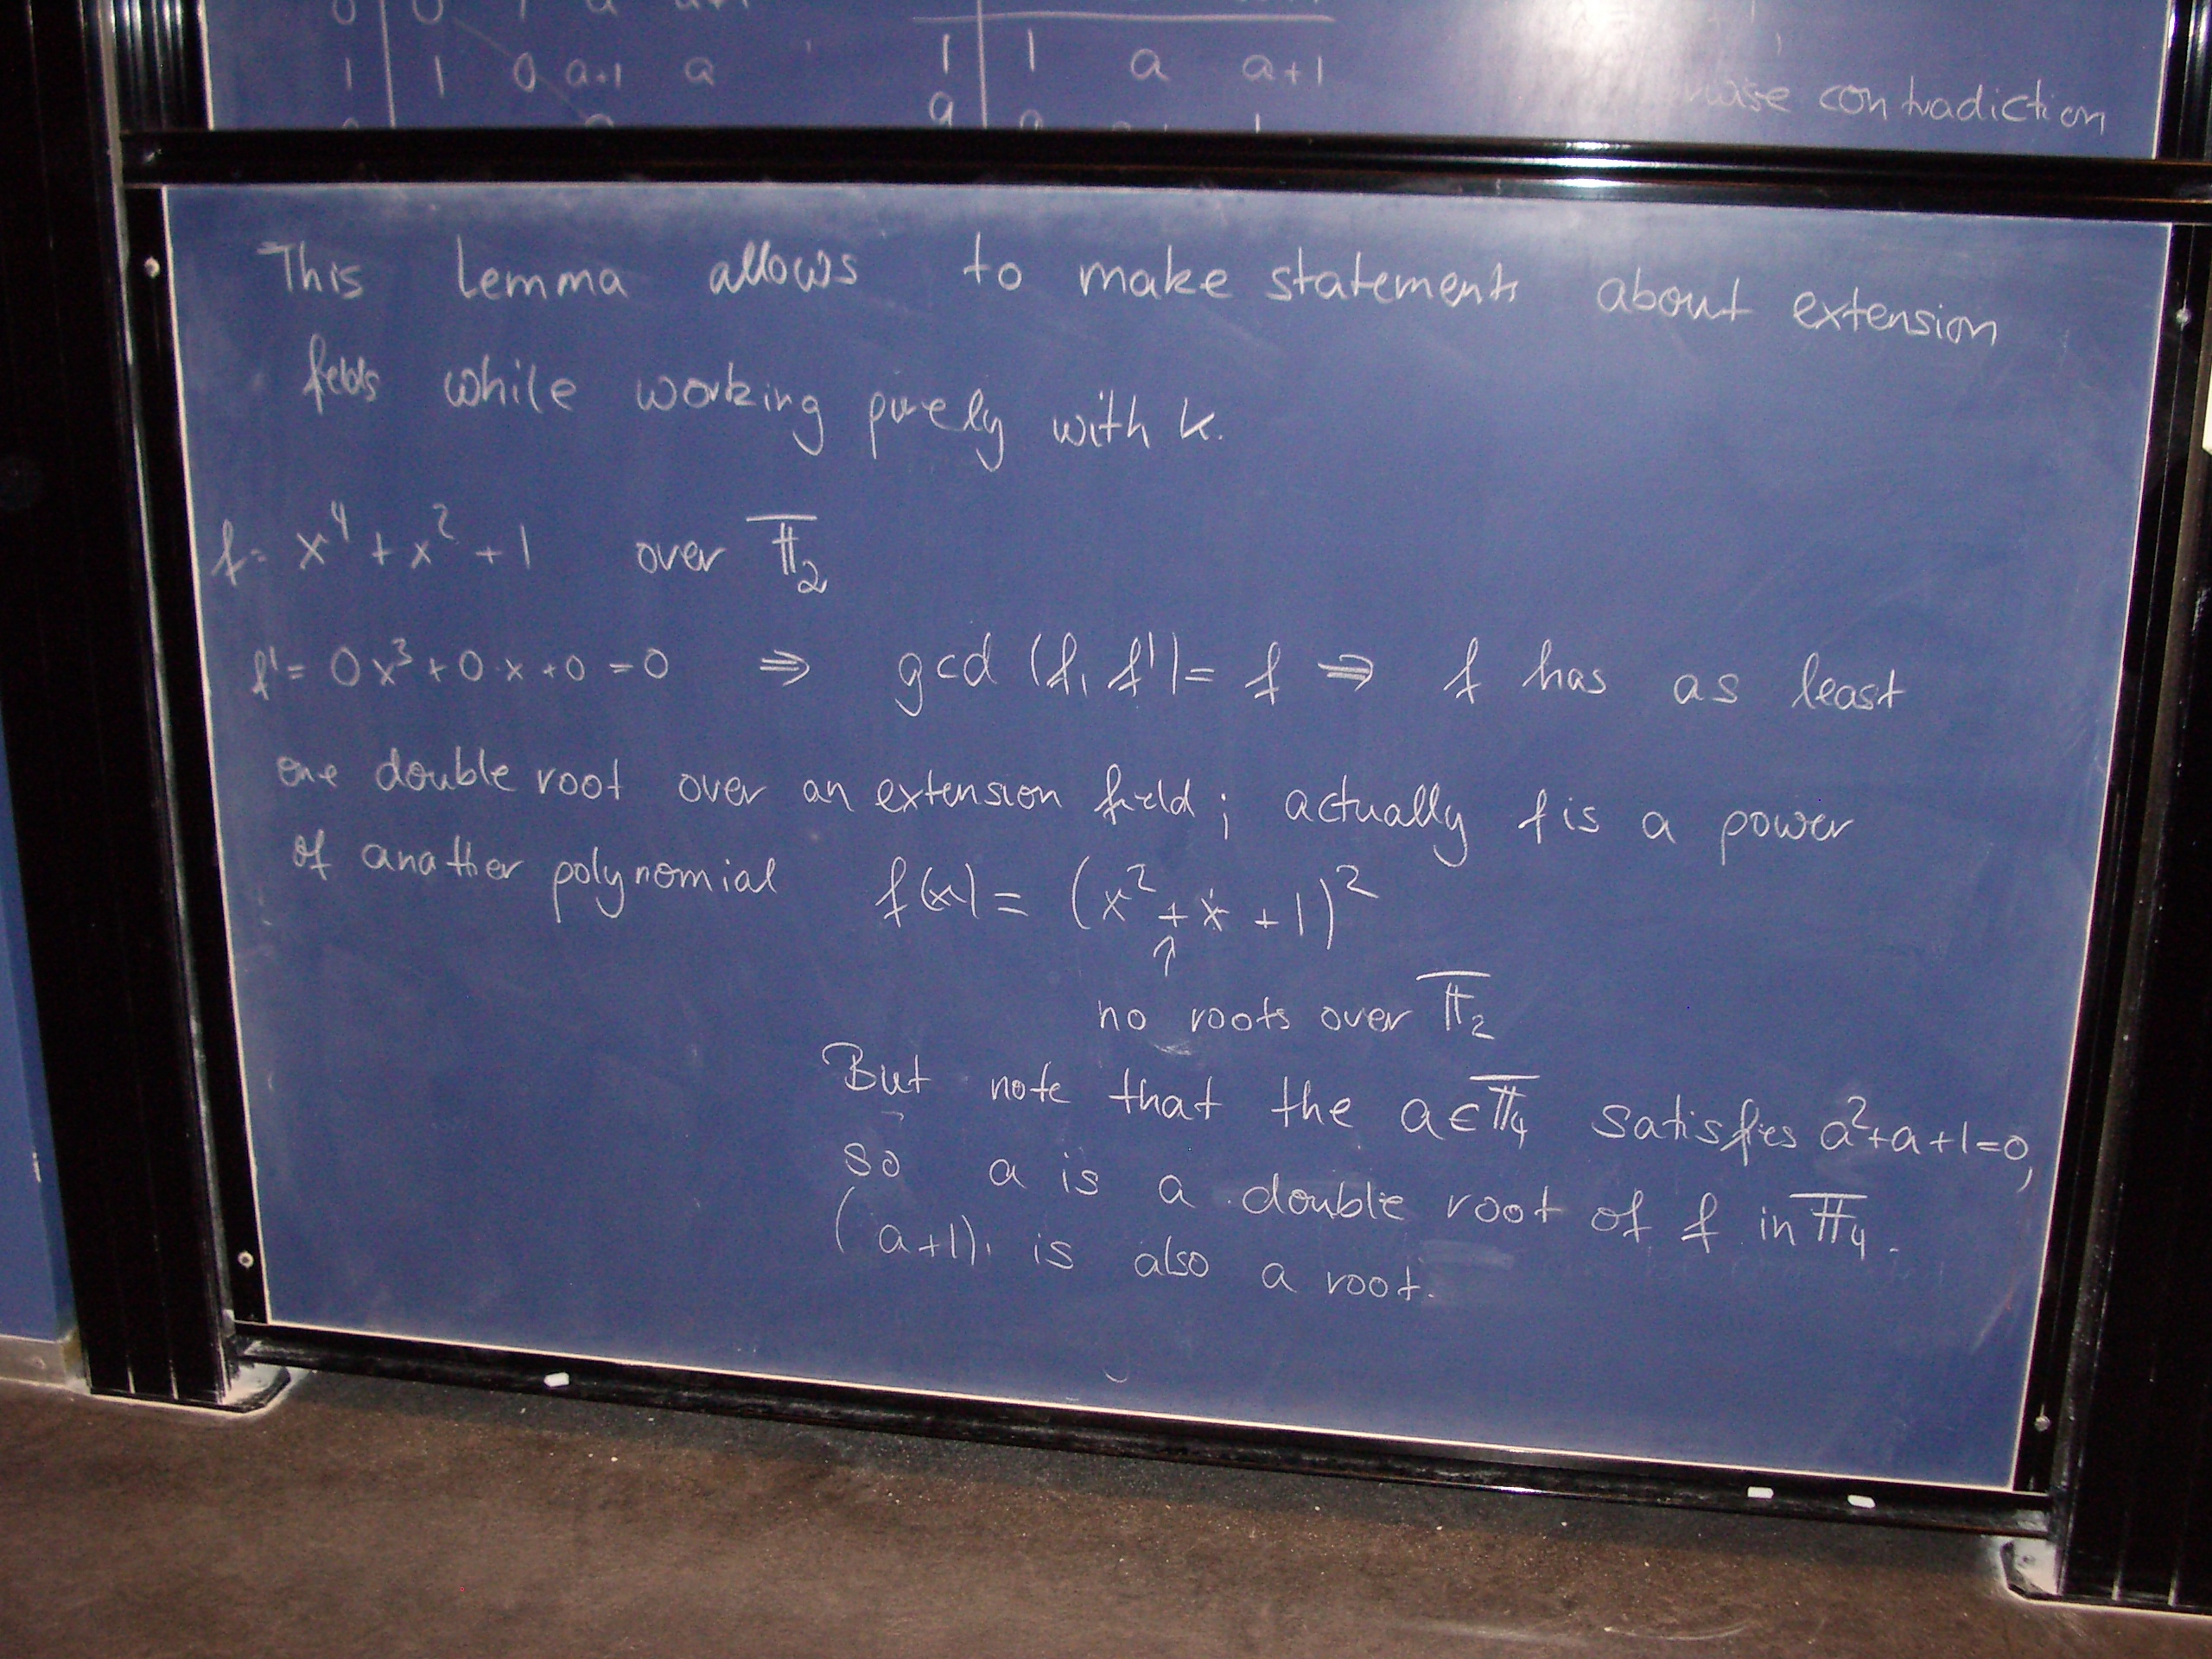 0 0 1 a a+1
1 1 0 a+1 a
1 1 a a+1
a
contradiction
This Lemma allows to make statements about extension
fields while working purely with k.
f = x⁴ + x² + 1 over 𝔽₂
f' = 0x³ + 0·x + 0 = 0 ⇒ gcd (f, f') = f ⇒ f has as least
one double root over an extension field; actually f is a power
of another polynomial f(x) = (x² + x + 1)²
↑
no roots over 𝔽₂
But note that the a ∈ 𝔽₄ satisfies a²+a+1=0,
so a is a double root of f in 𝔽₄.
(a+1) is also a root.